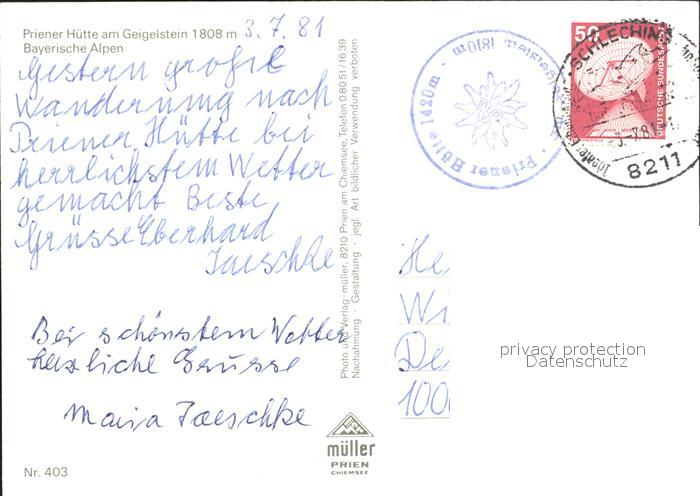 Priener Hütte am Geigelstein 1808 m
Bayerische Alpen
3.7.81
Gestern große
Wanderung nach
Priener Hütte bei
herrlichstem Wetter
gemacht Beste
Grüsse Eberhard
Jaeschke
Bei schönstem Wetter
herzliche Grüsse
Maria Jaeschke
Nr. 403
Photo und Verlag · müller, 8210 Prien am Chiemsee, Telefon 0 80 51 / 16 39
Nachahmung · Gestaltung · jegl. Art bildlicher Verwendung verboten
müller
PRIEN
CHIEMSEE
Priener Hütte 1420 m · Geigelstein 1810 m
50
DEUTSCHE BUNDESPOST
SCHLECHING
8211
He
Wi
De
100
privacy protection
Datenschutz